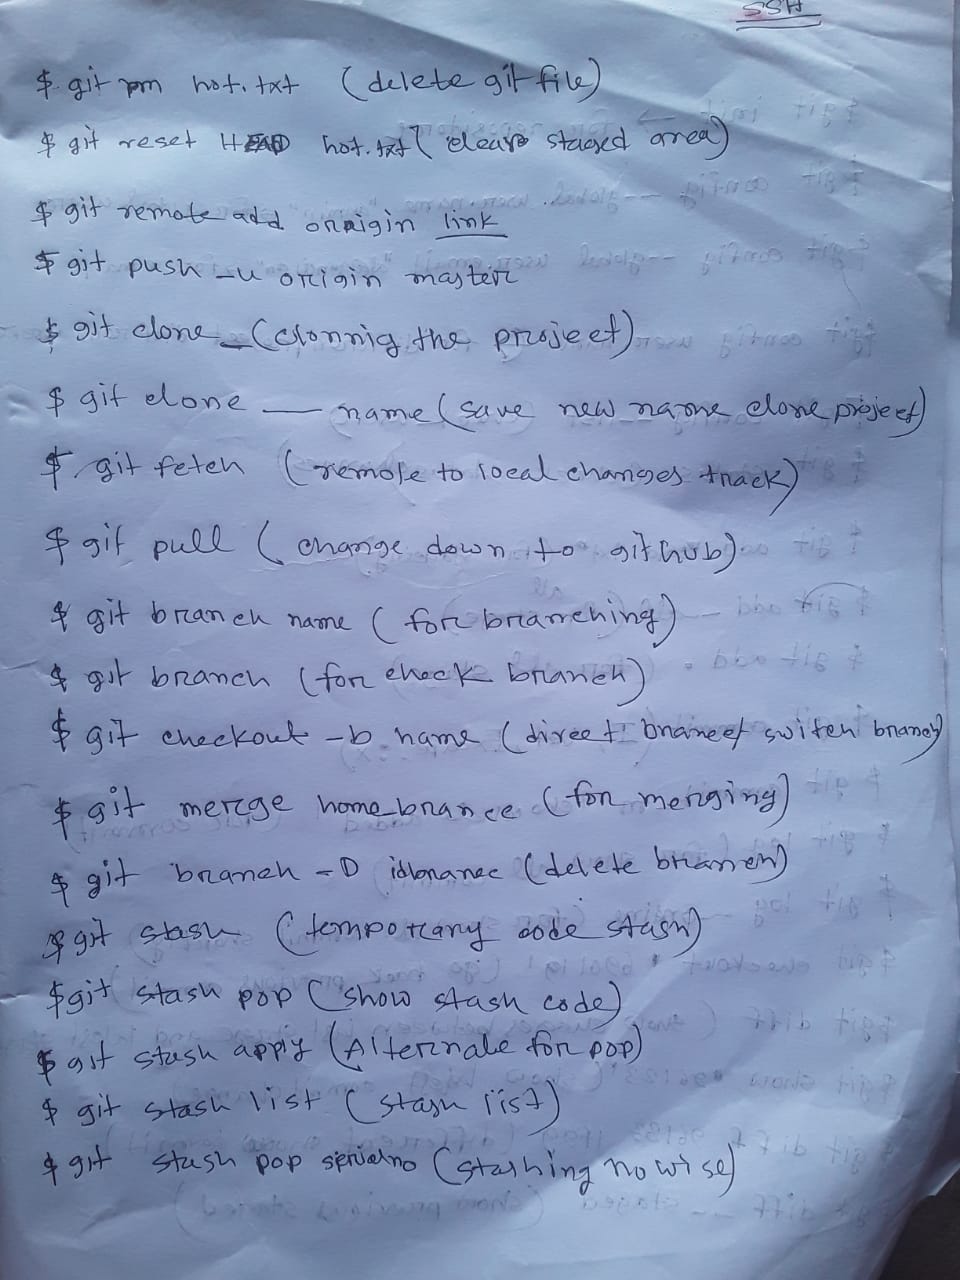 SSH
$ git rm hot.txt (delete git file)
$ git reset HEAD hot.txt (clear staged area)
$ git remote add origin link
$ git push -u origin master
$ git clone _ (clonnig the project)
$ git clone __ name (save new name clone project)
$ git fetch (remote to local changes track)
$ git pull (change down to github)
$ git branch name (for branching)
$ git branch (for check branch)
$ git checkout -b name (direct switch branch)
$ git merge home_brance (for merging)
$ git branch -D (delete branch)
$ git stash (temporary code stash)
$ git stash pop (show stash code)
$ git stash apply (Alternate for pop)
$ git stash list (stash list)
$ git stash pop serialno (stashing no wise)